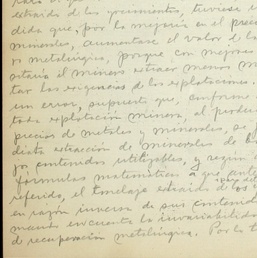 extraido de los yacimientos, tuviese
dida que, por la mejoria en el prec
minerales, aumentase el valor de la
vo metalúrgico, porque con mejores
sitaria el minero extraer menos m
tar las exigencias de las explotaciones.
un error, supuesto que, conforme
toda explotación minera, al produc
precios de metales y minerales, se
dicta extracción de minerales de b
jo contenidos utilizables, y según
formulas matemáticas a que ante
referido, el tonelaje extraido de los
en razón inversa de sus contenid
mando en cuenta la invariabilidad
de recuperación metalúrgica. Por lo t